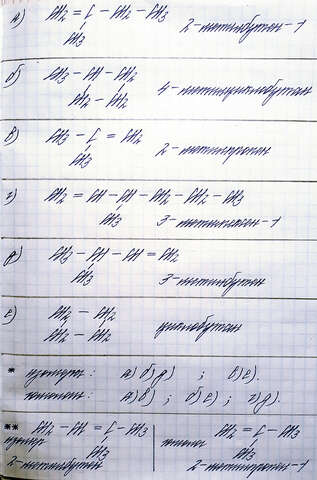 а) CH2 = C - CH2 - CH3
CH3
2-метилбутен-1
б) CH3 - CH - CH2
CH2 - CH2
4-метилциклобутан
в) CH3 - C = CH2
CH3
2-метилпропен
г) CH2 = CH - CH - CH2 - CH2 - CH3
CH3
3-метилгексен-1
д) CH3 - CH - CH = CH2
CH3
3-метилбутен
е) CH2 - CH2
CH2 - CH2
циклобутан
* изомеры: а)б)д) ; в)е).
гомологи: а)в) ; б)е) ; г)д).
** CH2 - CH = C - CH3
изомер CH3
2-метилбутен
CH2 = C - CH3
CH3
2-метилпропен-1